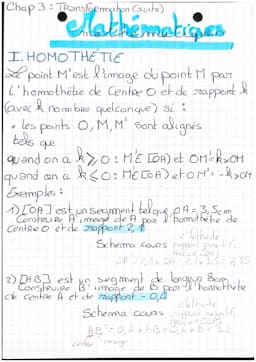 Chap 3 : Transformation (suite)
Mathématiques
I. HOMOTHÉTIE
Le point M' est l'image du point M par
l'homothétie de Centre O et de rapport k
(avec k nombre quelconque) si :
• les points O, M, M' sont alignés
tels que
quand on a k⩾0 : M'∈ [OA) et OM'=k×OM
quand on a k⩽0 : M'∈ [OA) et OM'= -k×OM
Exemples :
1) [OA] est un segment tel que OA = 3,5cm
Construire A' image de A par l'homothétie de
centre O et de rapport 2,1
Schema cours
2) [AB] est un segment de longueur 8cm
Construire B' image de B par l'homothétie
de centre A et de rapport -0,4
Schema cours
AB' = 0,4×AB = 0,4×8 = 3,2
centre image